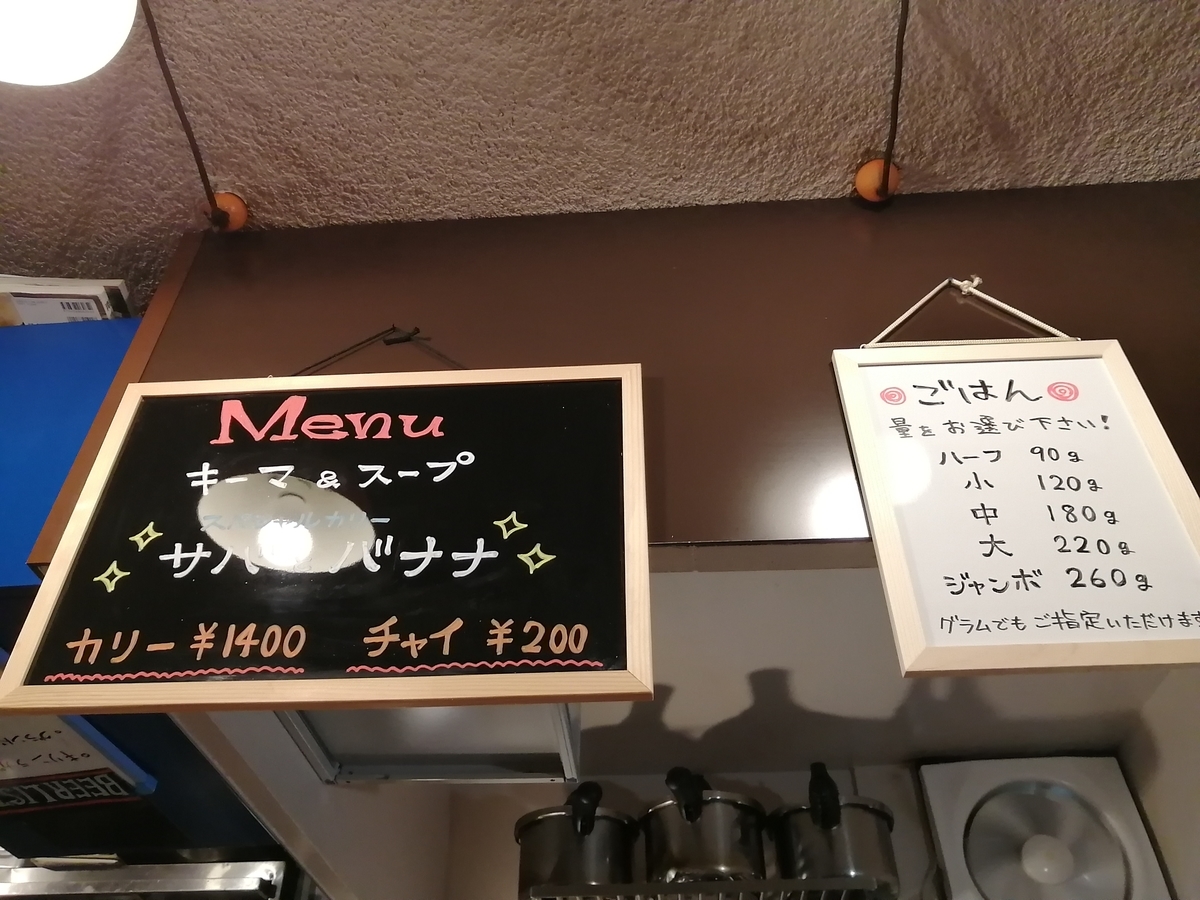 Menu
キーマ & スープ
スペシャルカリー
サバ バナナ
カリー ¥1400 チャイ ¥200
ごはん
量をお選び下さい!
ハーフ 90g
小 120g
中 180g
大 220g
ジャンボ 260g
グラムでもご指定いただけます
BEER LIST